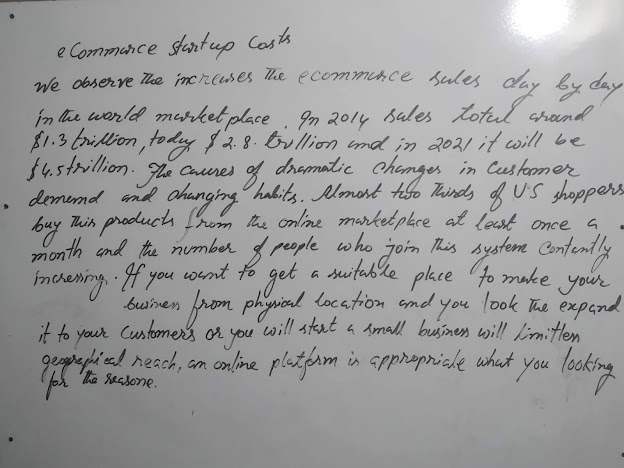 eCommerce Startup Costs
We observe the increases the ecommerce sales day by day
in the world market place. In 2014 sales total around
$1.3 trillion, today $2.8. trillion and in 2021 it will be
$4.5 trillion. The causes of dramatic changes in Customer
demend and changing habits. Almost two thirds of US shoppers
buy this products from the online marketplace at least once a
month and the number of people who join this system Contantly
incressing. If you want to get a suitable place to make your
business from physical location and you look the expand
it to your Customers or you will start a small business will Limitless
geographical reach, an online platform is appropriate what you looking
for the reasone.